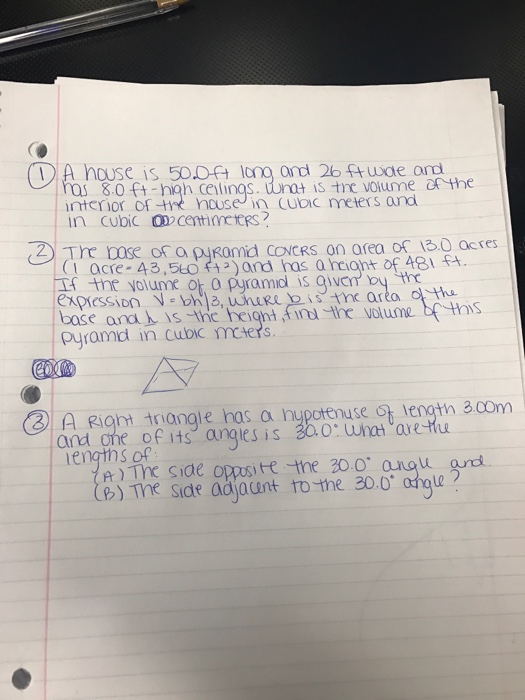 ① A house is 50.0ft long and 26 ft wide and
has 8.0 ft-high ceilings. What is the volume of the
interior of the house in cubic meters and
in cubic centimeters?
② The base of a pyramid covers an area of 13.0 acres
(1 acre = 43,560 ft²) and has a height of 481 ft.
If the volume of a pyramid is given by the
expression V = bh/3, where b is the area of the
base and h is the height, find the volume of this
pyramid in cubic meters.
③ A Right triangle has a hypotenuse of length 3.00m
and one of its angles is 30.0°. What are the
lengths of:
(A) The side opposite the 30.0° angle and
(B) The side adjacent to the 30.0° angle?